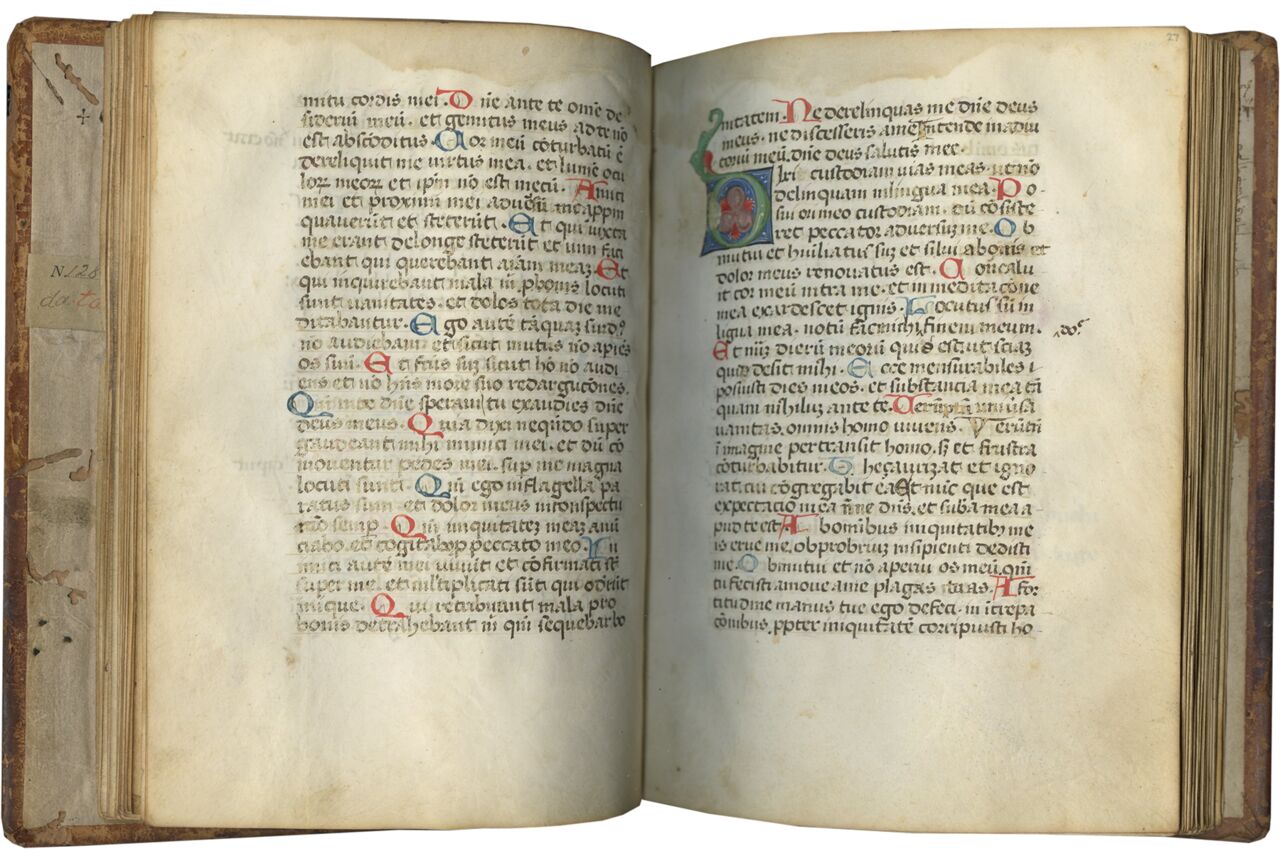 N. 128
data
mitu cordis mei. Dñe ante te om̄e de
sideriū meū. et gemitus meus ad te nō
est absconditus. Cor meū cōturbatū ē
dereliquit me virtus mea. et lumē ocu
loꝝ meoꝝ et ip̄m nō est mecū. Amici
mei et proximi mei adversū me appin
quaverūt et steterūt. Et qui iuxta
me erant de longe steterūt et vim faci
ebant qui querebant aīam meaꝫ. Et
qui inquirebant mala m̄. locuti
sunt vanitates. et dolos tota die me
ditabantur. Ego autē tāquaꝫ surdꝰ
nō audiebam et sicut mutus nō apiēs
os suū. Et fcūs suꝫ sicut hō nō audi
ens et nō hn̄s in ore suo redargucōnes.
Qm̄ in te dn̄e speravi tu exaudies dn̄e
deus meus. Quia dixi nequn̄do super
gaudeant mihi inimici mei. et dū cō
moventur pedes mei. sup me magna
locuti sunt. Qm̄ ego in flagella pa
ratus sum. et dolor meus in conspectu
meo semp. Qm̄ iniquitateꝫ meaꝫ anū
ciabo. et cogitabo ꝓ peccato meo. In
imici autē mei vivūt et cōfirmati st̄
super me. et multiplicati sūt qui oderūt
inique. Qui retribuunt mala pro
bonis detrahebant m̄ qm̄ sequebar bo
27
nitatem. Ne derelinquas me dn̄e deus
meus. ne discesseris a me. Intende in adiu
toriū meū. dn̄e deus salutis mee.
Dixi custodiam vias meas. ut nō
delinquam in lingua mea. Po
sui ori meo custodiam. dū cōsiste
ret peccator adversuꝫ me. Ob
mutui et huiliatus suꝫ et silui a bonis et
dolor meus renovatus est. Concalu
it cor meū intra me. et in meditacōne
mea exardescet ignis. Locutus sū in
ligua mea. notū fac michi finem meum.
dn̄e
Et nūꝫ dierū meorū qui est. ut sciaꝫ
quid desit mihi. Ecce mensurabiles
posuisti dies meos. et substancia mea tā
quam nihiluꝫ ante te. Verūptn̄ univsa
vanitas. omnis homo vivens. Verūtn̄
ī imagine pertransit homo. sꝫ et frustra
cōturbabitur. Thesaurizat et igno
rat. cui cōgregabit ea. Et nūc que est
expectacio mea nn̄e dn̄s. et suba mea a
pud te est. Ab omnibus iniquitatibꝫ me
is erue me. obprobriuꝫ insipienti dedisti
me. Obmutui et nō aperui os meū. qm̄
tu fecisti amove a me plagas tuas. A for
titudine manus tue ego defeci. in īcrepa
cōnibus. ꝓpter iniquitatē corripuisti ho